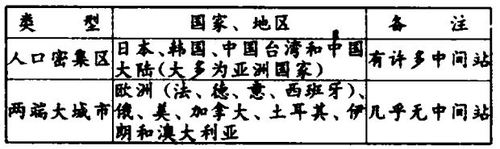 类 型 国家、地区 备 注
人口密集区 日本、韩国、中国台湾和中国大陆(大多为亚洲国家) 有许多中间站
两端大城市 欧洲(法、德、意、西班牙)、俄、美、加拿大、土耳其、伊朗和澳大利亚 几乎无中间站